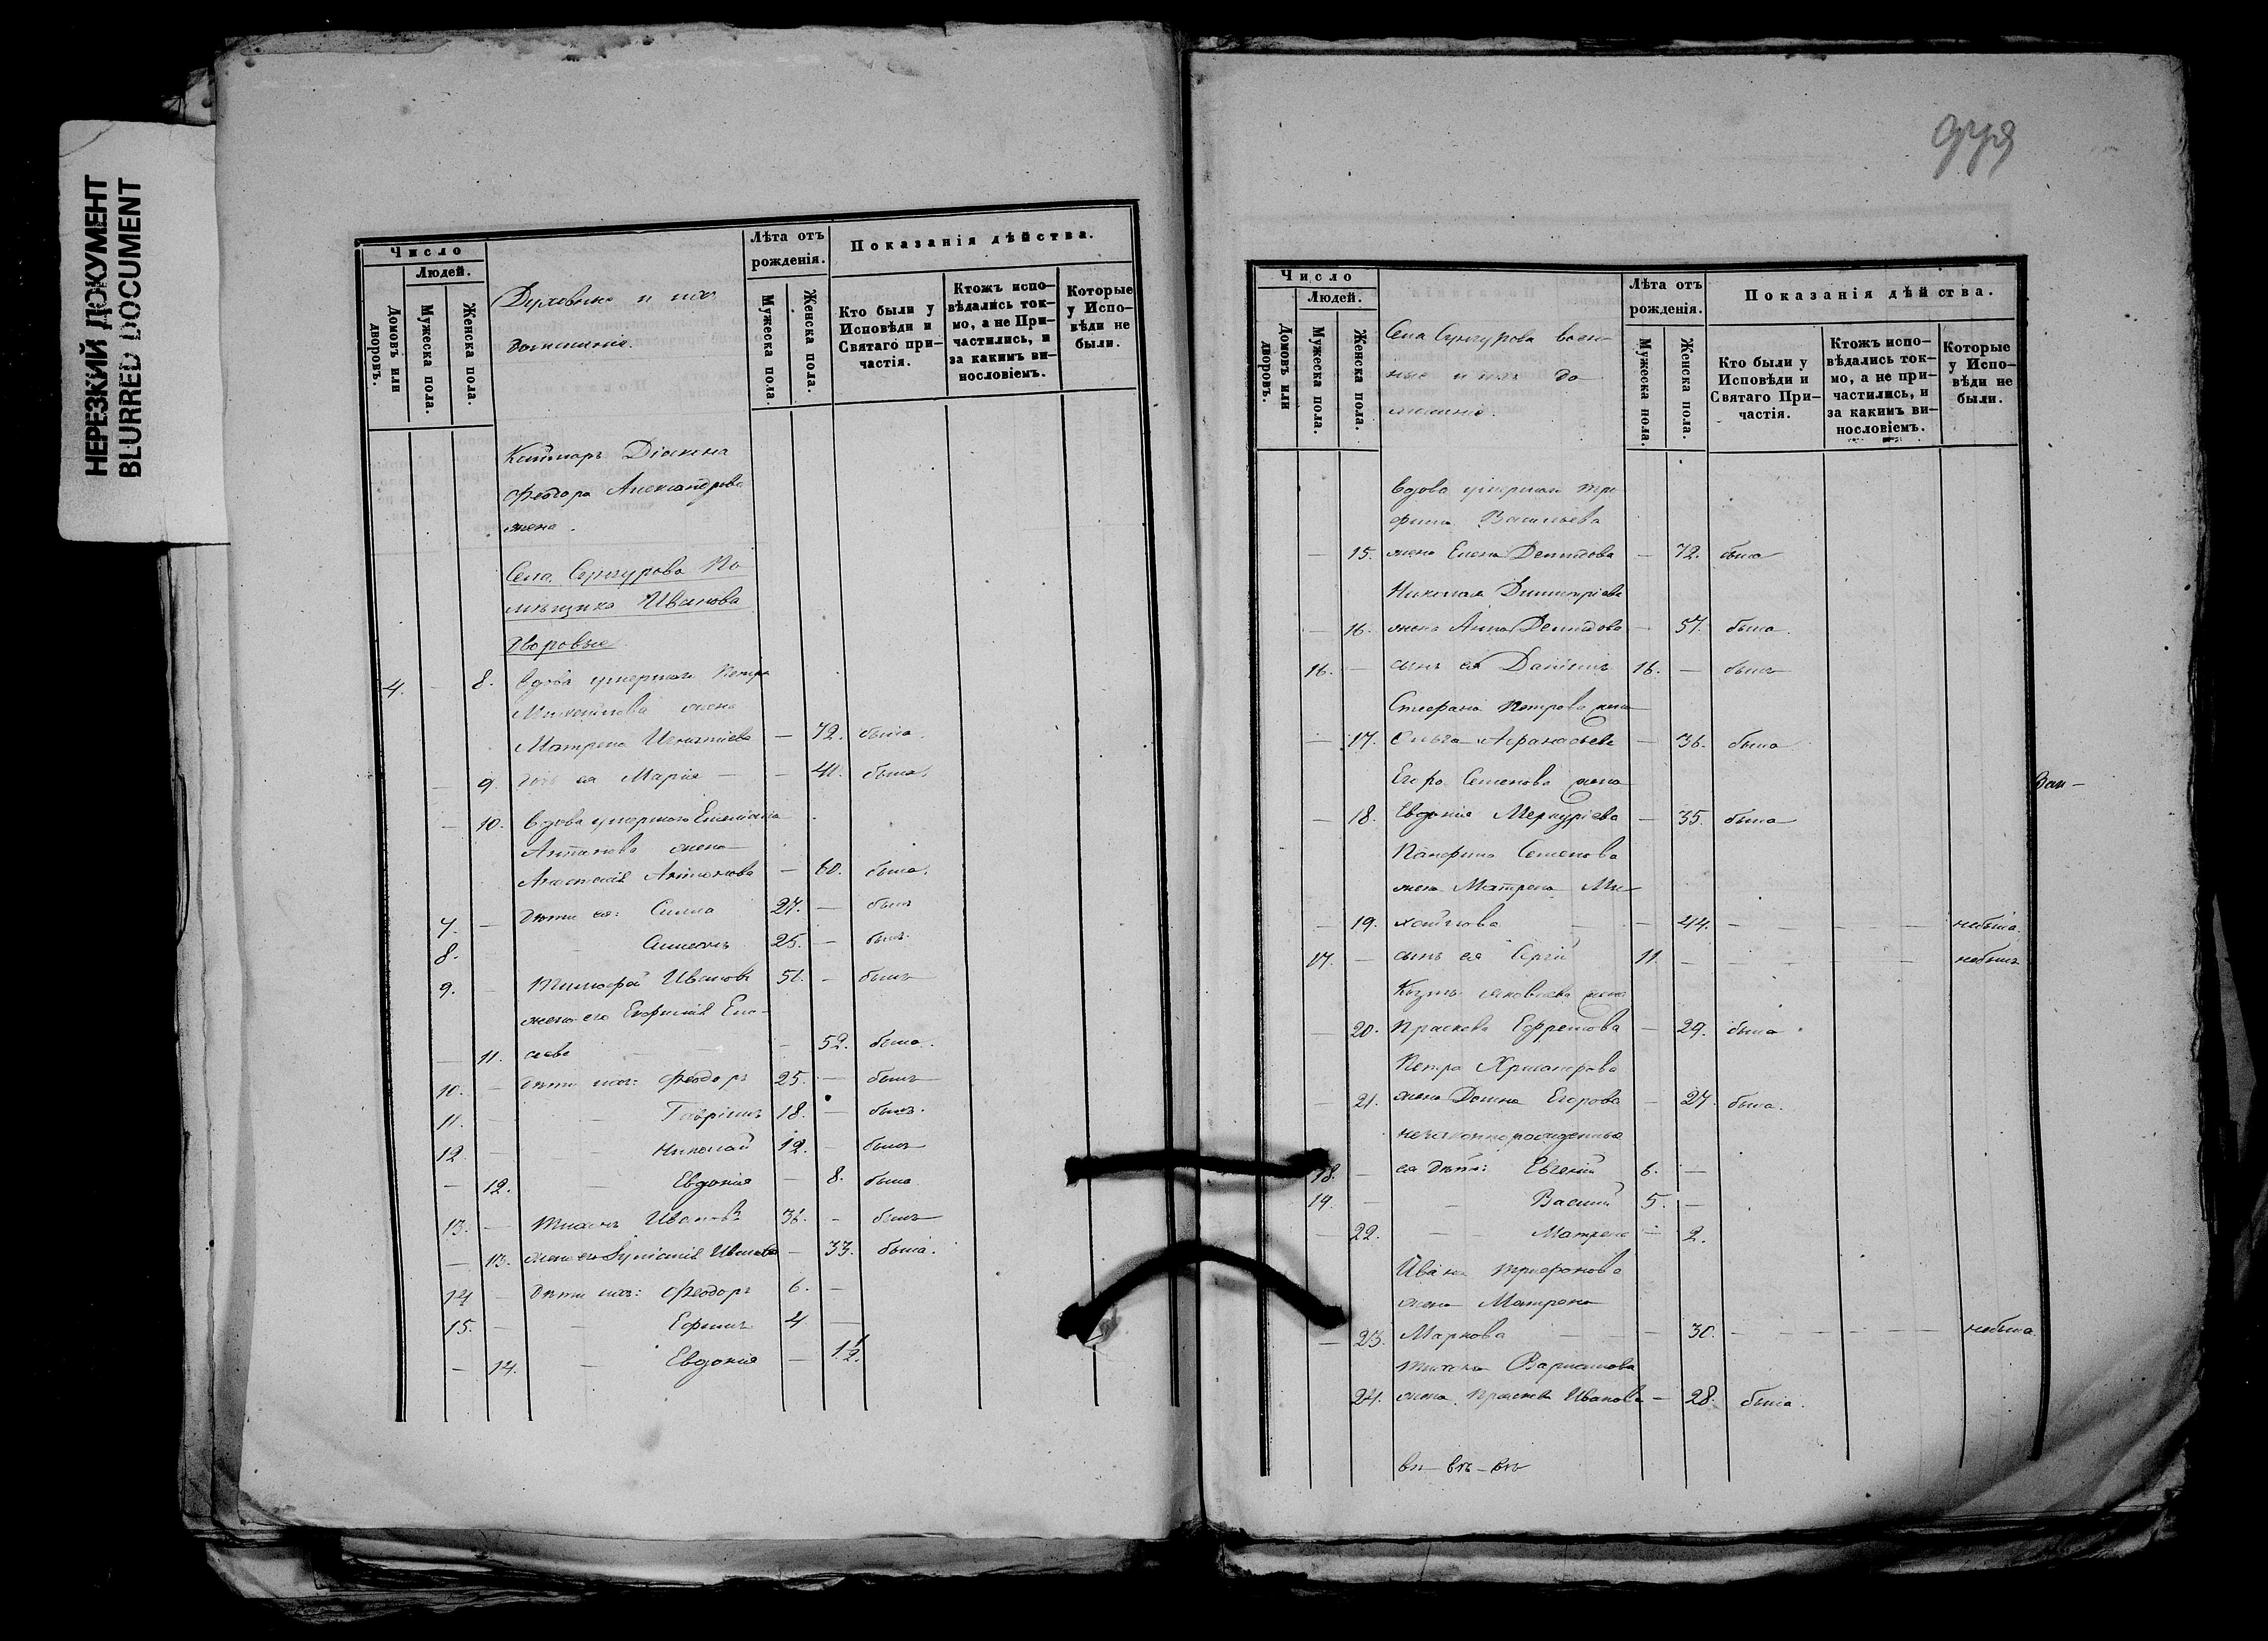 НЕРЕЗКИЙ ДОКУМЕНТ
BLURRED DOCUMENT
Число
Людей.
Домовъ или дворовъ.
Мужеска пола.
Женска пола.
Духовные и ихъ
домашние.
Лѣта отъ рожденія.
Мужеска пола.
Женска пола.
Показанія дѣйства.
Кто были у Исповѣди и Святаго причастія.
Ктожъ исповѣдались токмо, а не Причастились, и за какимъ винословіемъ.
Которые у Исповѣди не были.
Діакона
Феодора Александрова
жена.
Села Сунгурова По
мѣщика Иванова
дворовые
4. — 8. Вдова умершаго Петра
Михайлова жена
Матрена Игнатіева — 72. была.
— 9. дочь ея Марія — — 41. была.
— 10. Вдова умершаго
Антонова жена
Анастасія Антонова — 60. была.
7. — дѣти ея: Симіа 27. — былъ
8. — Симеонъ 25. — былъ
9. — Тимофей Ивановъ 51. — былъ
жена его Евфимія Ели-
— 11. сеева — 52. была.
10. — дѣти ихъ: Феодоръ 25. — былъ
11. — — Гавріилъ 18. — былъ.
12. — — Николай 12. — былъ
— 12. — Евдокія — 8. была
13. — Тихонъ Ивановъ 36. — былъ
— 13. жена его Іуліанія Иванова — 33. была.
14 — дѣти ихъ: Феодоръ 6. —
15. — — Ефимъ 4 —
— 14. — Евдокія — 1 1/2.
Число
Людей.
Домовъ или дворовъ.
Мужеска пола.
Женска пола.
Села Сунгурова воен-
ные и ихъ до
машніе.
Лѣта отъ рожденія.
Мужеска пола.
Женска пола.
Показанія дѣйства.
Кто были у Исповѣди и Святаго Причастія.
Ктожъ исповѣдались токмо, а не причастились, и за какимъ винословіемъ.
Которые у Исповѣди не были.
Вдова умершаго Три
фона Васильева
— 15. жена Елена Демидова — 72. была
Николая Димитріева
— 16. жена Анна Демидова — 57. была.
16. — сынъ ея Даніилъ 16. — былъ
Стефана Петрова жена
— 17. Ольга Афанасьева — 36. была
Егора Семенова жена
— 18. Евдокія Меркуріева — 35. была
Панфила Семенова
жена Матрена Ми-
— 19. хайлова — 44. — — — — небыла.
17. — сынъ ея Сергій 11. — — — — небылъ
Козмы Яковлева жена
— 20. Прасковья Ефремова — 29. была
Петра Хрисанфова
— 21. жена Домна Егорова — 27. была.
незаконнорожденные
18. — ея дѣти: Евгеній 6. —
19. — — Василій 5. —
— 22. — — Матрена — 2.
Ивана Трифонова
жена Матрена
— 23. Маркова — — 30. — — — — небыла.
Тихона Варламова
24. жена Прасковья Иванова — 28. была.